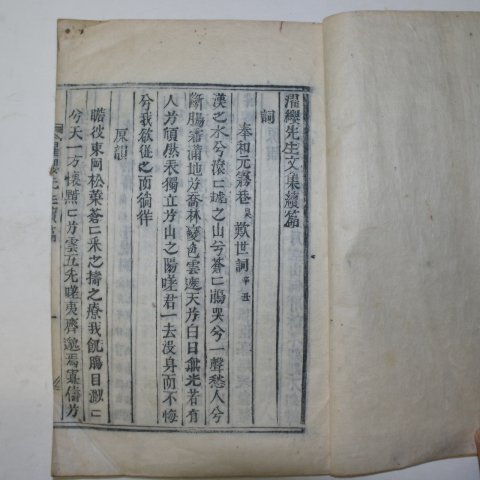 濯纓先生文集續篇
詞
奉和元霧巷昊歎世詞辛丑
漢之水兮滾〻墟之山兮蒼〻鵑哭兮一聲愁人兮
斷腸霜滿地兮喬林變色雲遮天兮白日無光若有
人兮頎然天獨立兮山之陽嗟君一去沒身而不悔
兮我欲從之而徜徉
原韻
瞻彼東岡松葉蒼〻采之擣之療我飢腸目渺〻
兮天一方懷黯〻兮雲五光嗟夷齊邈焉寡儔兮